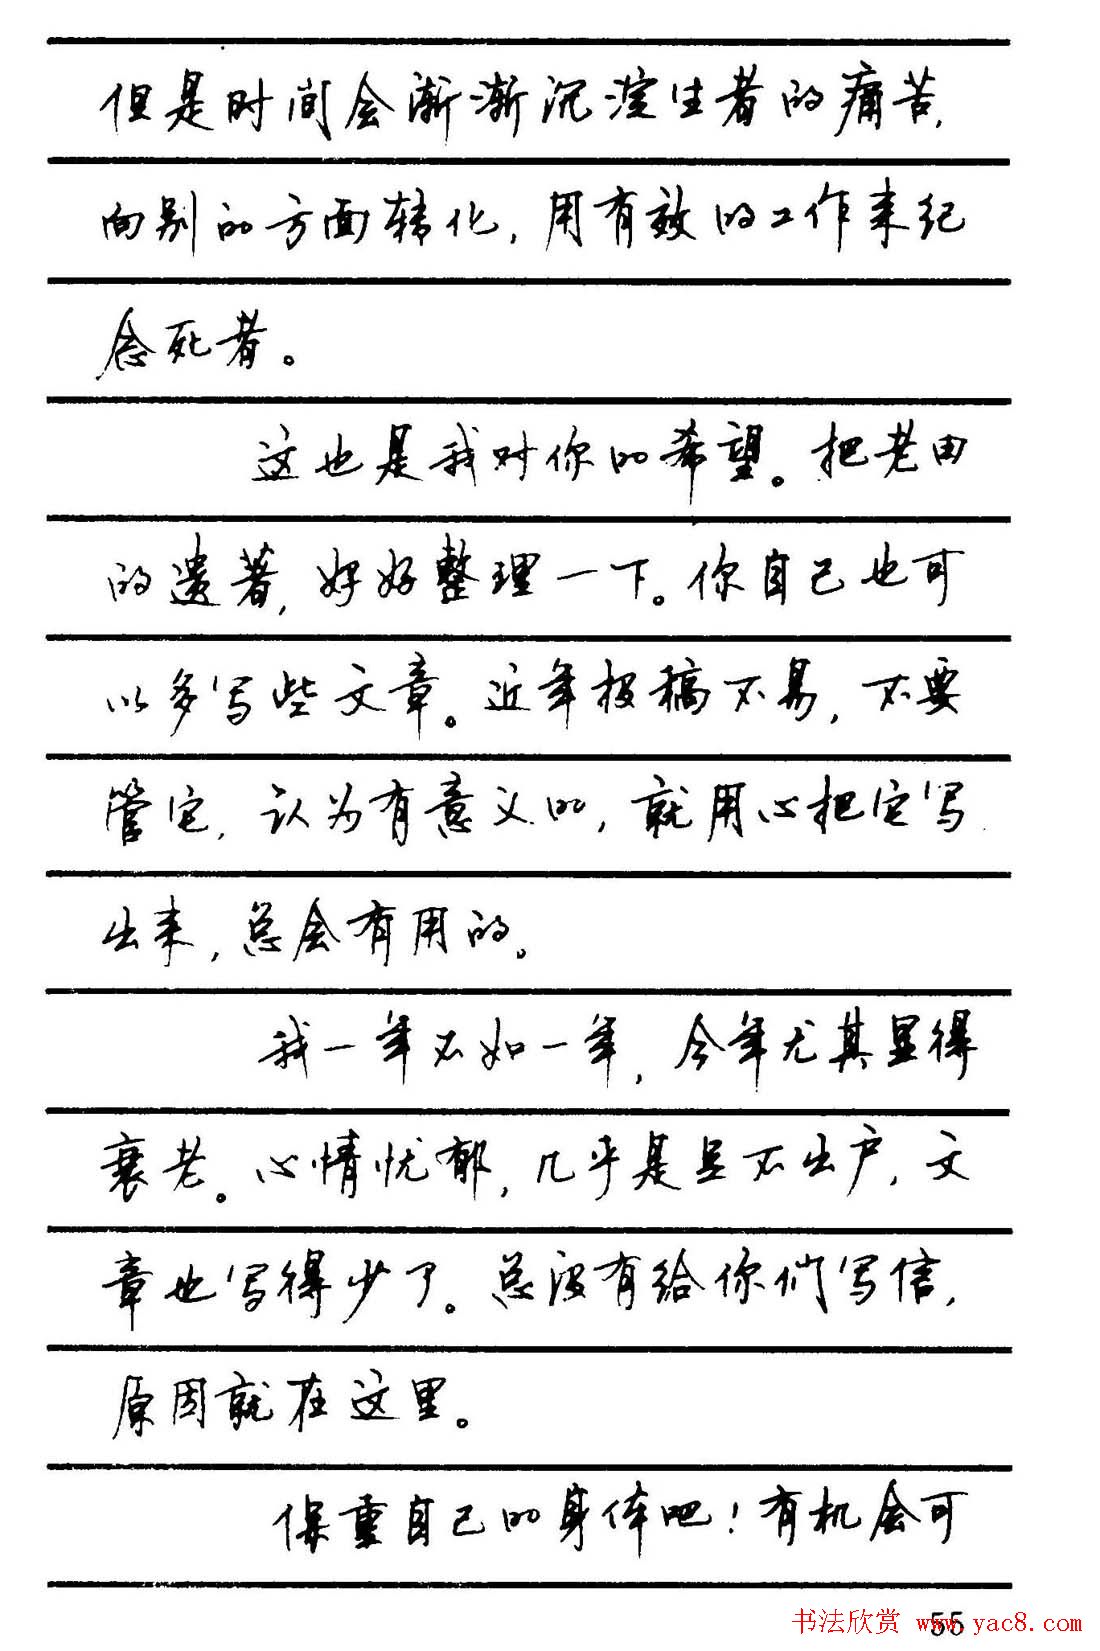 但是时间会渐渐沉淀生者的痛苦，
向别的方面转化，用有效的工作来纪
念死者。
这也是我对你的希望。把老田
的遗著，好好整理一下。你自己也可
以多写些文章。近年投稿不易，不要
管它，认为有意义的，就用心把它写
出来，总会有用的。
我一年不如一年，今年尤其显得
衰老。心情忧郁，几乎是足不出户，文
章也写得少了。总没有给你们写信，
原因就在这里。
保重自己的身体吧！有机会可
55
书法欣赏 www.yac8.com